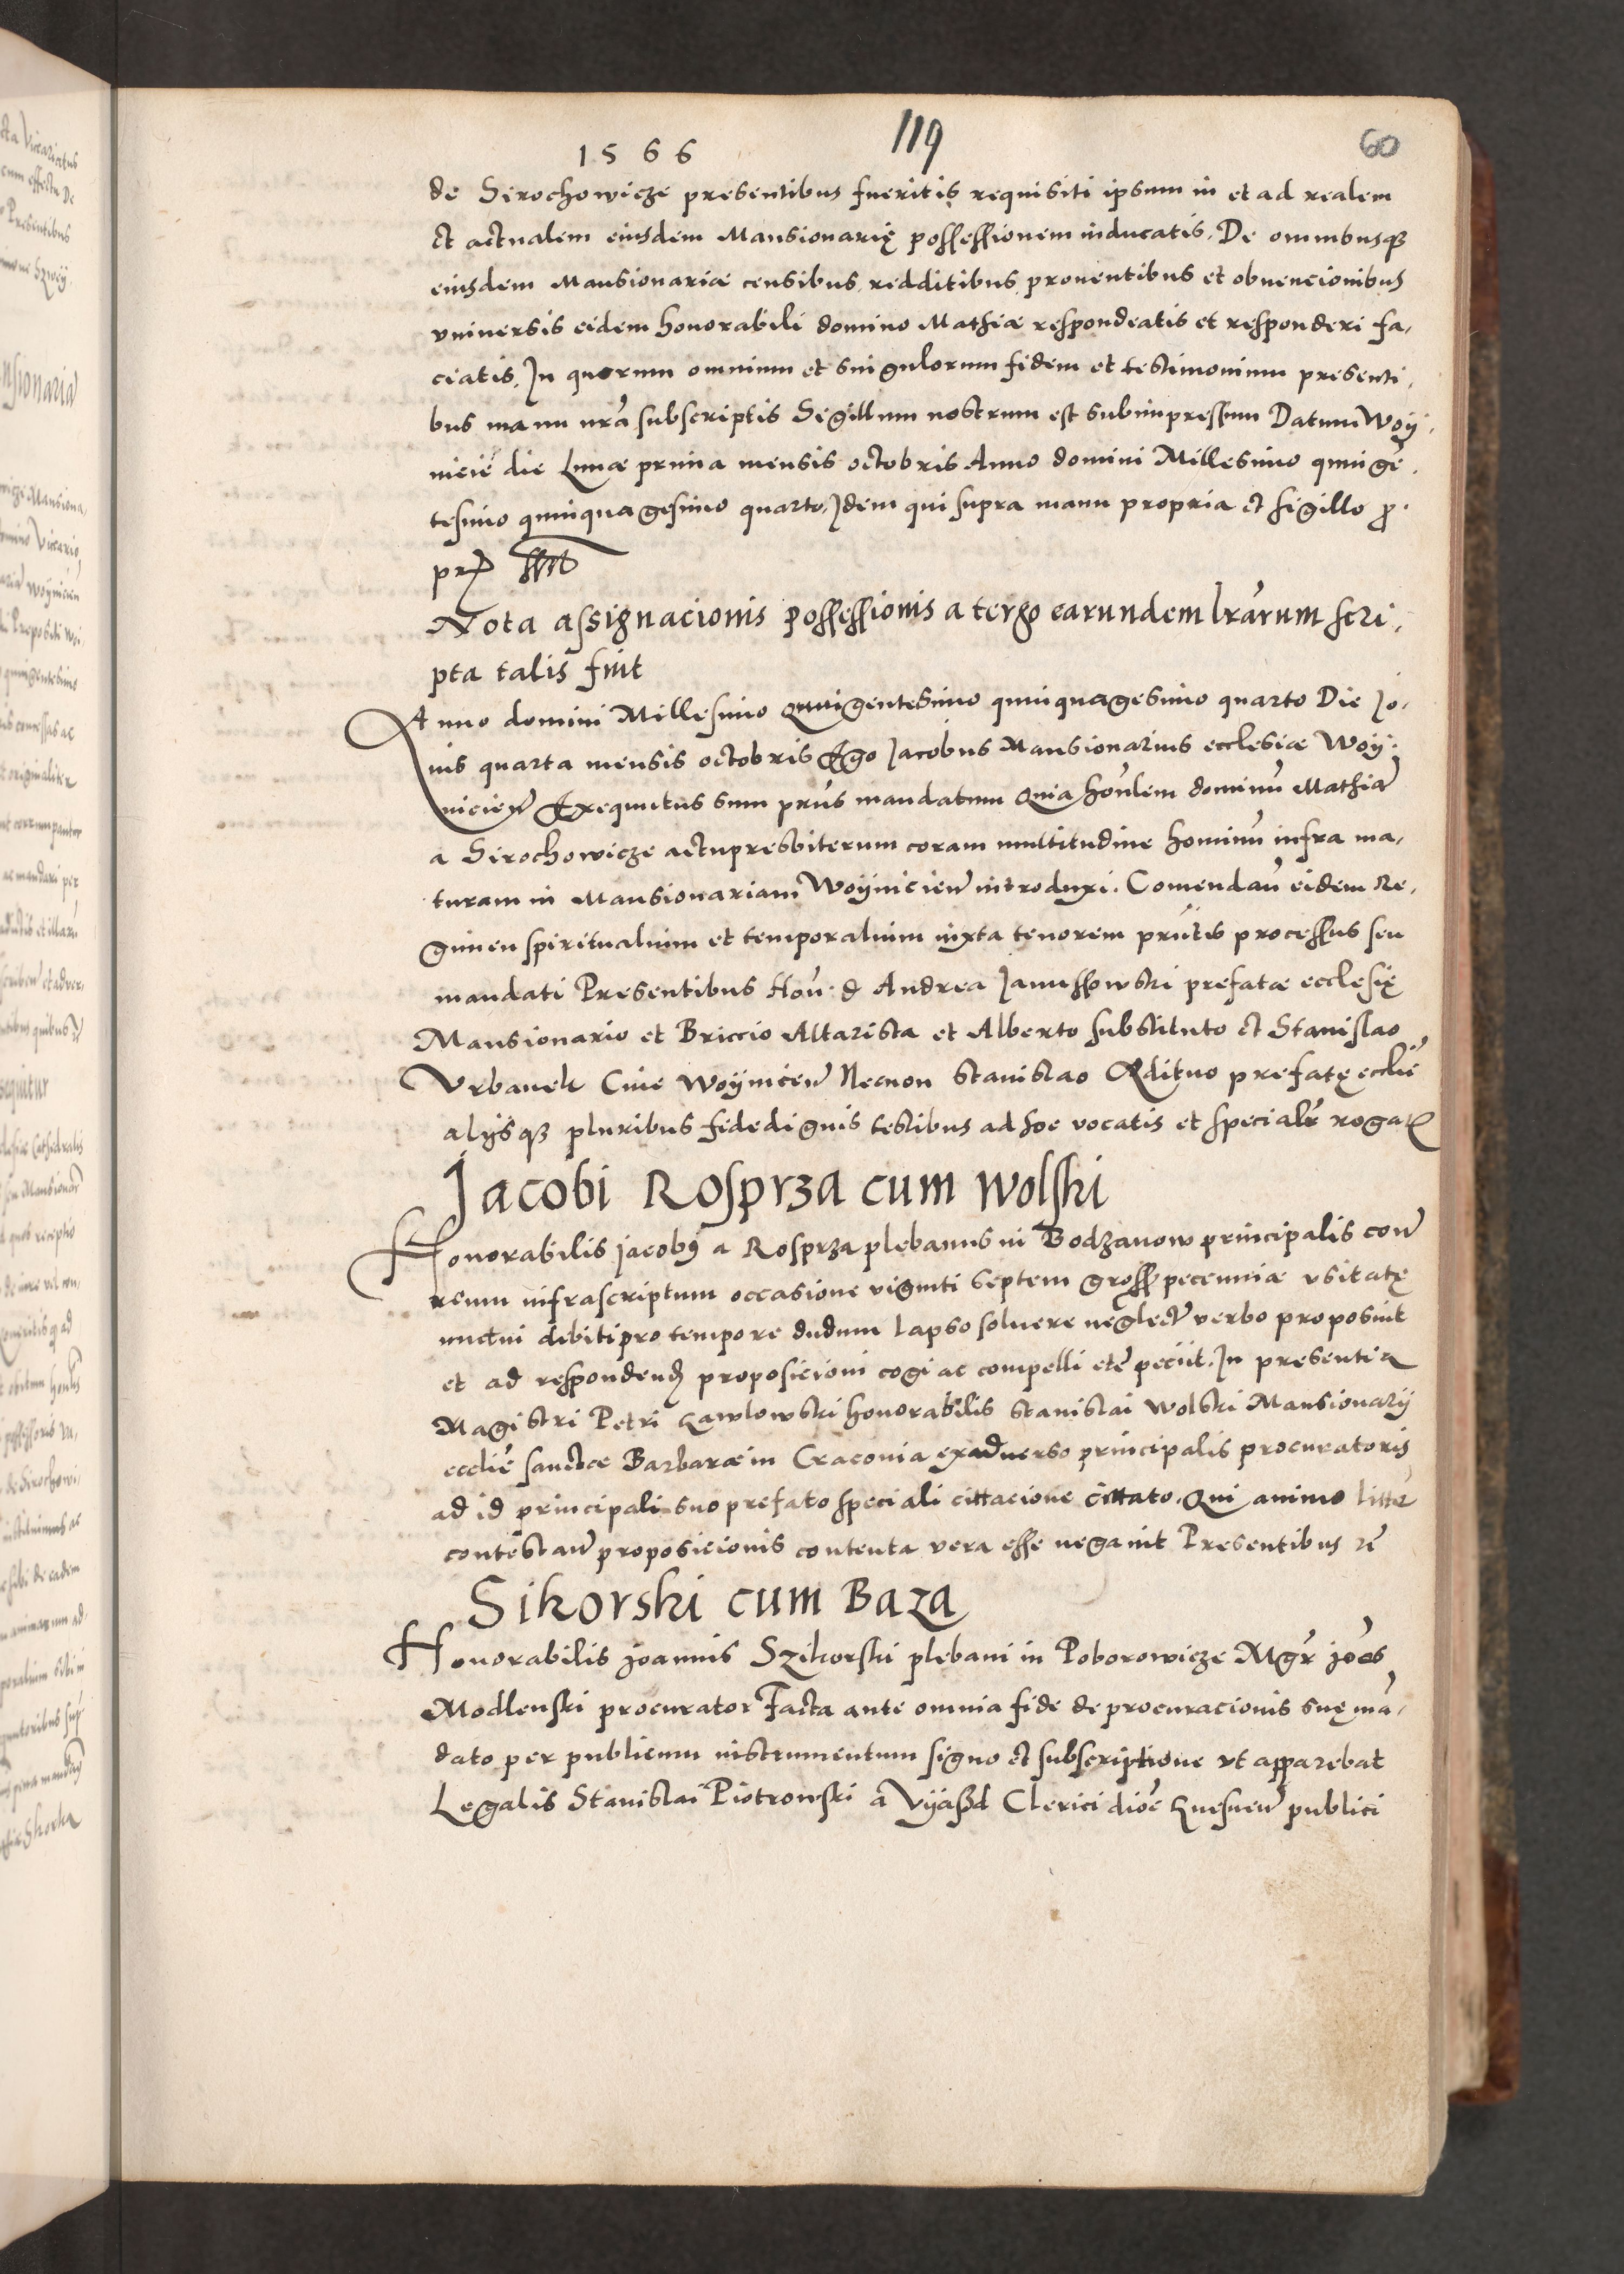 1566
119
60
de Sirochowicze presentibus fueritis requisiti ipsum in et ad realem
et actualem eiusdem Mansionarię possessionem inducatis. De omnibusqȝ
eiusdem Mansionariæ censibus redditibus proventibus et obvencionibus
vniversis eidem honorabili domino Mathiæ respondeatis et responderi fa,
ciatis. In quorum omnium et singulorum fidem et testimonium presenti,
bus manu nrã subscriptis Sigillum nostrum est subimpressum Datum Woy,
nicie die Lunæ prima mensis octobris Anno domini Millesimo quingẽ,
tesimo quinquagesimo quarto, Idem qui supra manu propria et sigillo p̲
Nota assignacionis possessionis a tergo earundem lrãrum scri,
pta talis fuit
Anno domini Millesimo Quingentesimo quinquagesimo quarto Die Jo,
uis quarta mensis octobris Ego Jacobus Mansionarius ecclesiæ Woy,
nicieñ Exequutus sum prñs mandatum Quia honlem dominũ Mathiã
a Sirochowicze actu presbiterum coram multitudine hominũ infra ma,
turam in Mansionariam Woynicieñ introduxi. Comendavi eidem Re,
gimen spiritualium et temporalium iuxta tenorem prñtis processus seu
mandati Presentibus Hoñ. d Andrea Janussowski prefatæ ecclesię
Mansionario et Briccio Altarista et Alberto substituto et Stanislao
Vrbanek Cive Woyniceñ Necnon Stanislao Æditvo prefatę ecclie
alijsqȝ pluribus fidedignis testibus ad hoc vocatis et specialr rogatis
Jacobi Rosprza cum Wolski
Honorabilis Jacobus a Rosprza plebanus in Bodzanow principalis con̄
reum infrascriptum occasione viginti septem gross pecuniæ vsitatę
mutui debiti pro tempore dudum lapso solvere neglecti verbo proposuit
et ad respondend proposicioni cogi ac compelli etc peciit. In presentia
Magistri Petri Kawlowski honorabilis Stanislai Wolski Mansionarij
ecclie sanctæ Barbaræ in Cracovia ex adverso principalis procuratoris
ad id principali suo prefato speciali cittacione cittato. Qui animo litte
contestañ proposicionis contenta vera esse negavit Presentibus rẽ
Sikorski cum Baza
Honorabilis Joannis Szikorski plebani in Poborowicze Mgr Joẽs
Modlenski procurator Facta ante omnia fide de procuracionis suę mã,
dato per publicum instrumentum signo et subscriptione vt apparebat
Legalis Stanislai Piotrowski a Vyasd Clerici dioc Gnesneñ publici